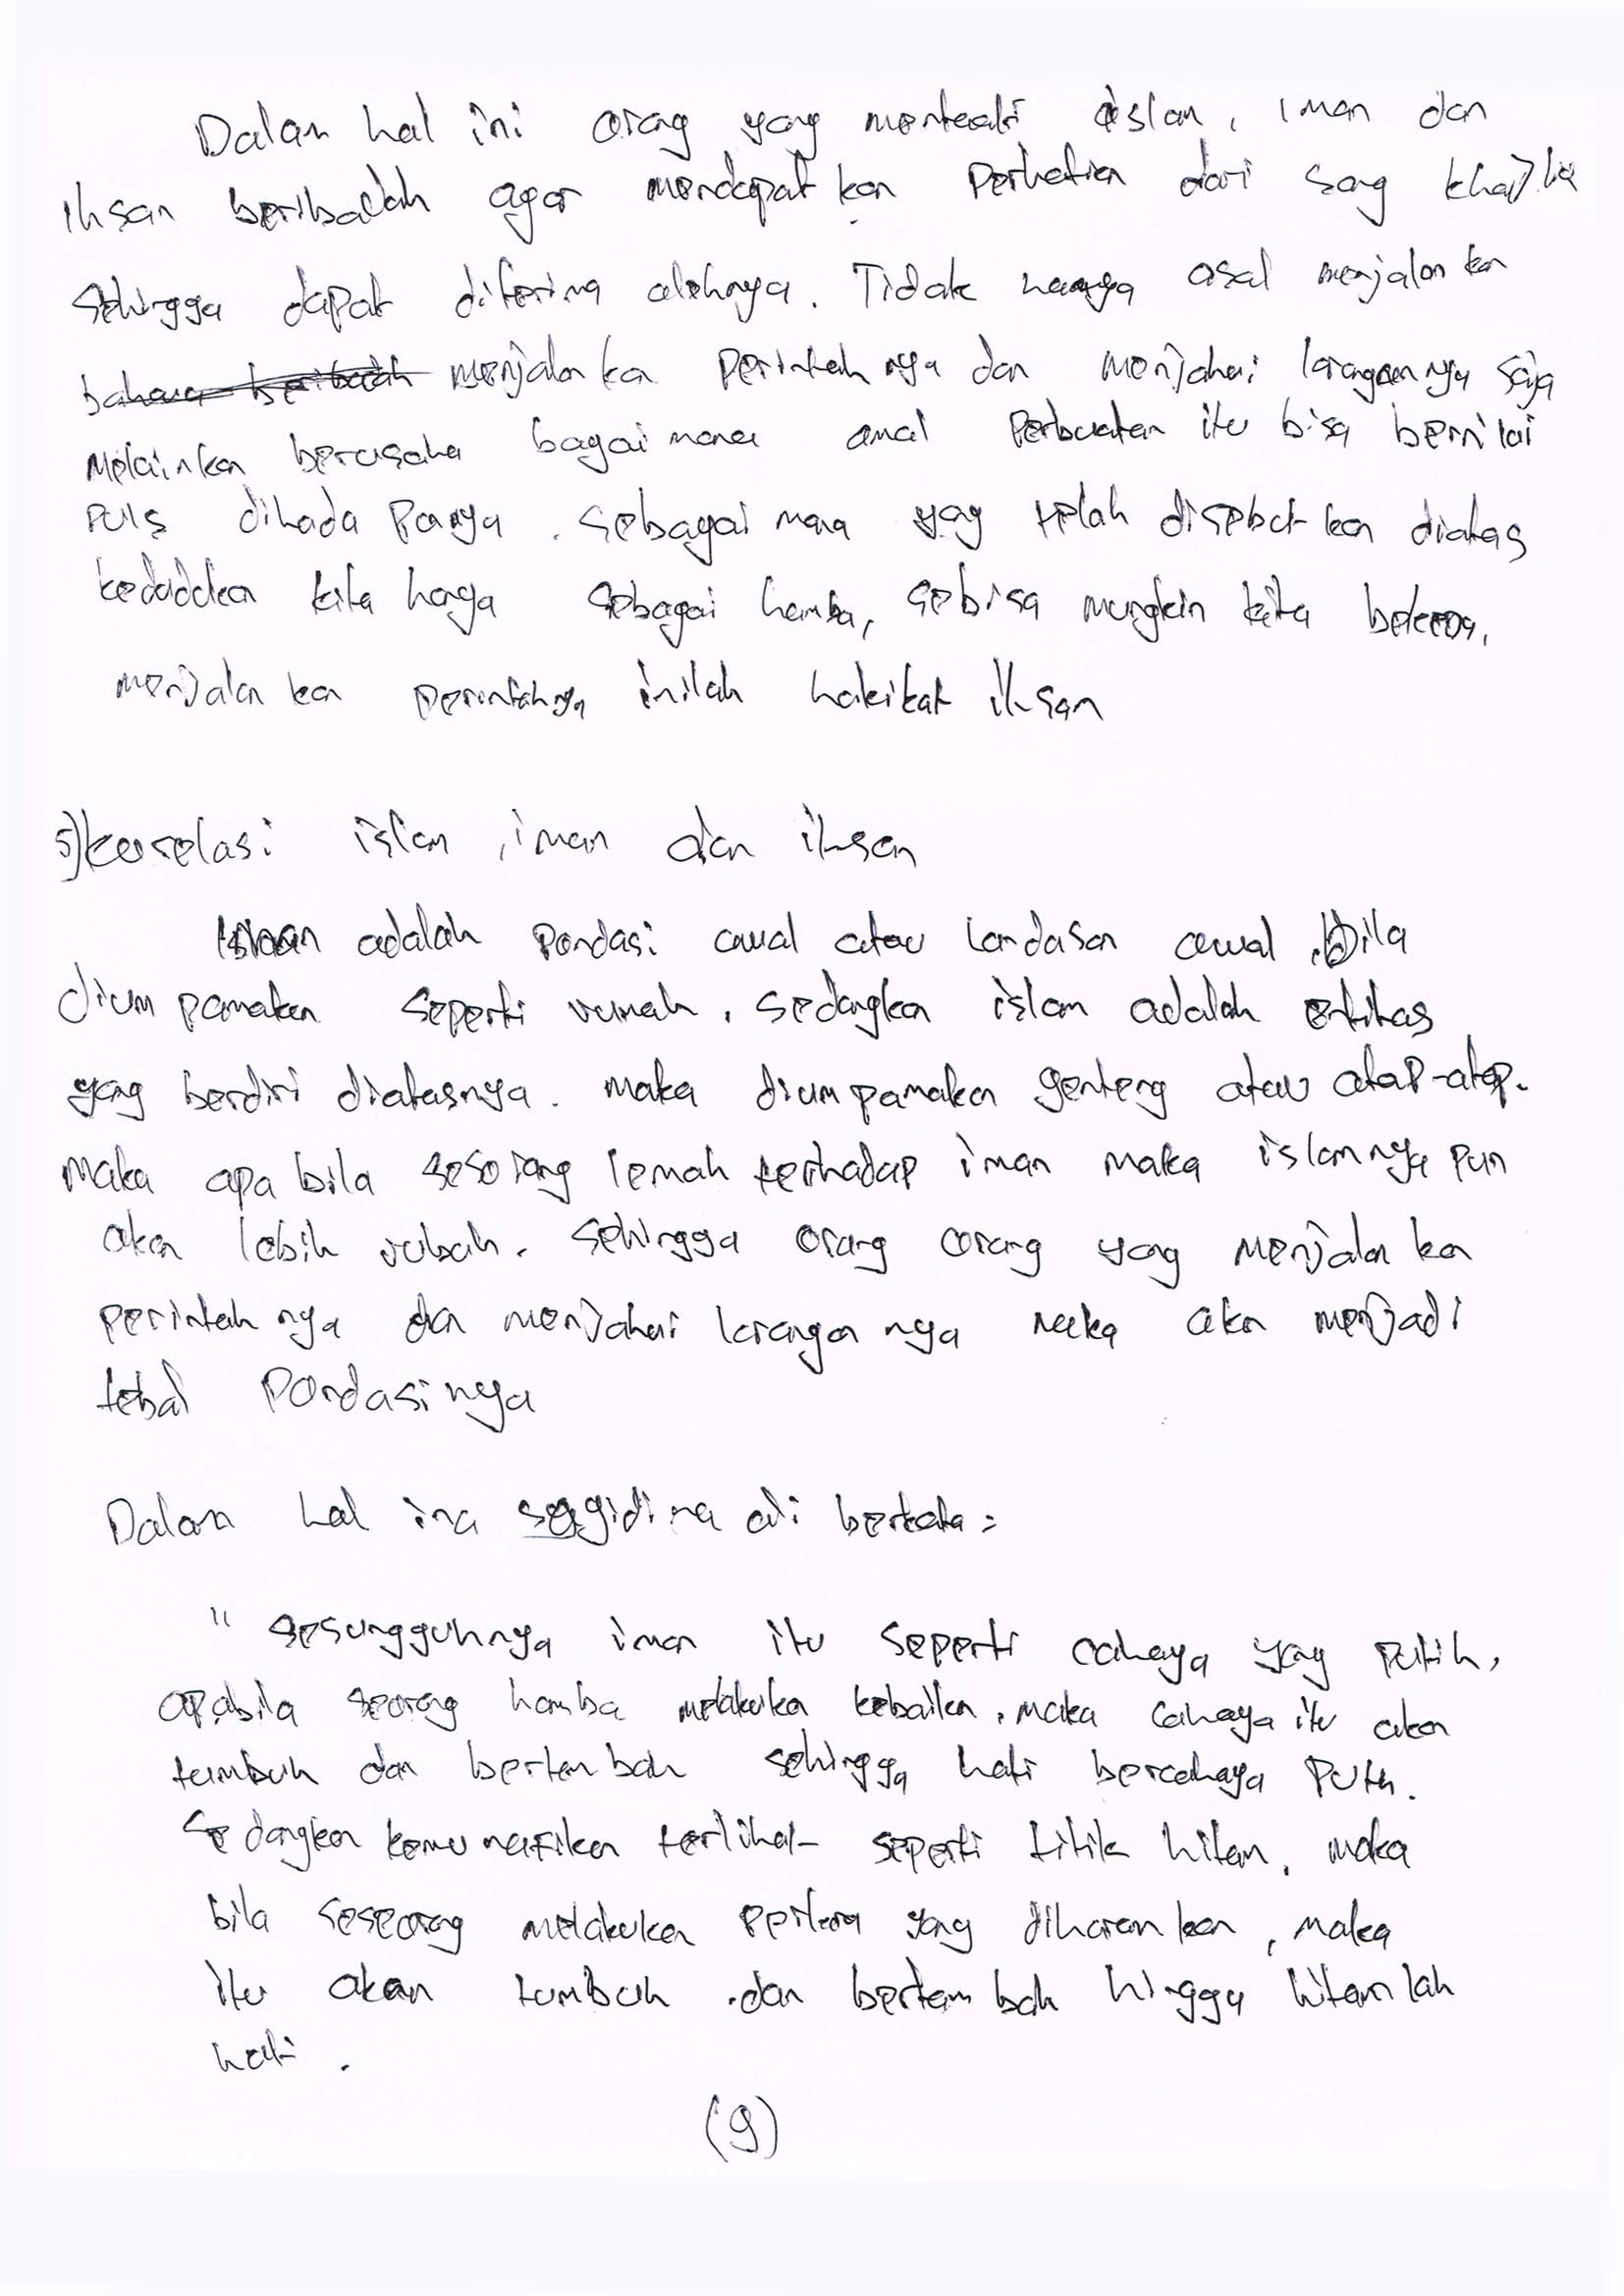 Dalam hal ini orang yang mentaati islam, iman dan
ihsan beribadah agar mendapatkan perhatian dari sang khalik
sehingga dapat diterima olehnya. Tidak hanya asal menjalankan
menjalankan perintahnya dan menjahui larangannya saja
melainkan berusaha bagaimana amal perbuatan itu bisa bernilai
puls dihadapanya. sebagaimana yang telah disebutkan diatas
kedudukan kita hanya sebagai hamba, sebisa mungkin kita
menjalankan perintahnya inilah hakikat ihsan
5) korelasi islam, iman dan ihsan
adalah pondasi awal atau landasan awal. bila
diumpamakan seperti rumah. sedangkan islam adalah entitas
yang berdiri diatasnya. maka diumpamakan genteng atau atap-atap.
maka apa bila sesorang lemah terhadap iman maka islamnya pun
akan lebih rubuh. sehingga orang orang yang menjalankan
perintahnya dan menjahui larangannya maka akan menjadi
tebal pondasinya
Dalam hal ina sayidina ali berkata:
" sesungguhnya iman itu seperti cahaya yang putih,
apabila seorang hamba melakukan kebaikan, maka cahaya itu akan
tumbuh dan bertambah sehingga hati bercahaya putih.
sedangkan kemunafikan terlihat seperti titik hitam, maka
bila seseorang melakukan perkara yang diharamkan, maka
itu akan tumbuh dan bertambah hingga hitamlah
hati.
(9)